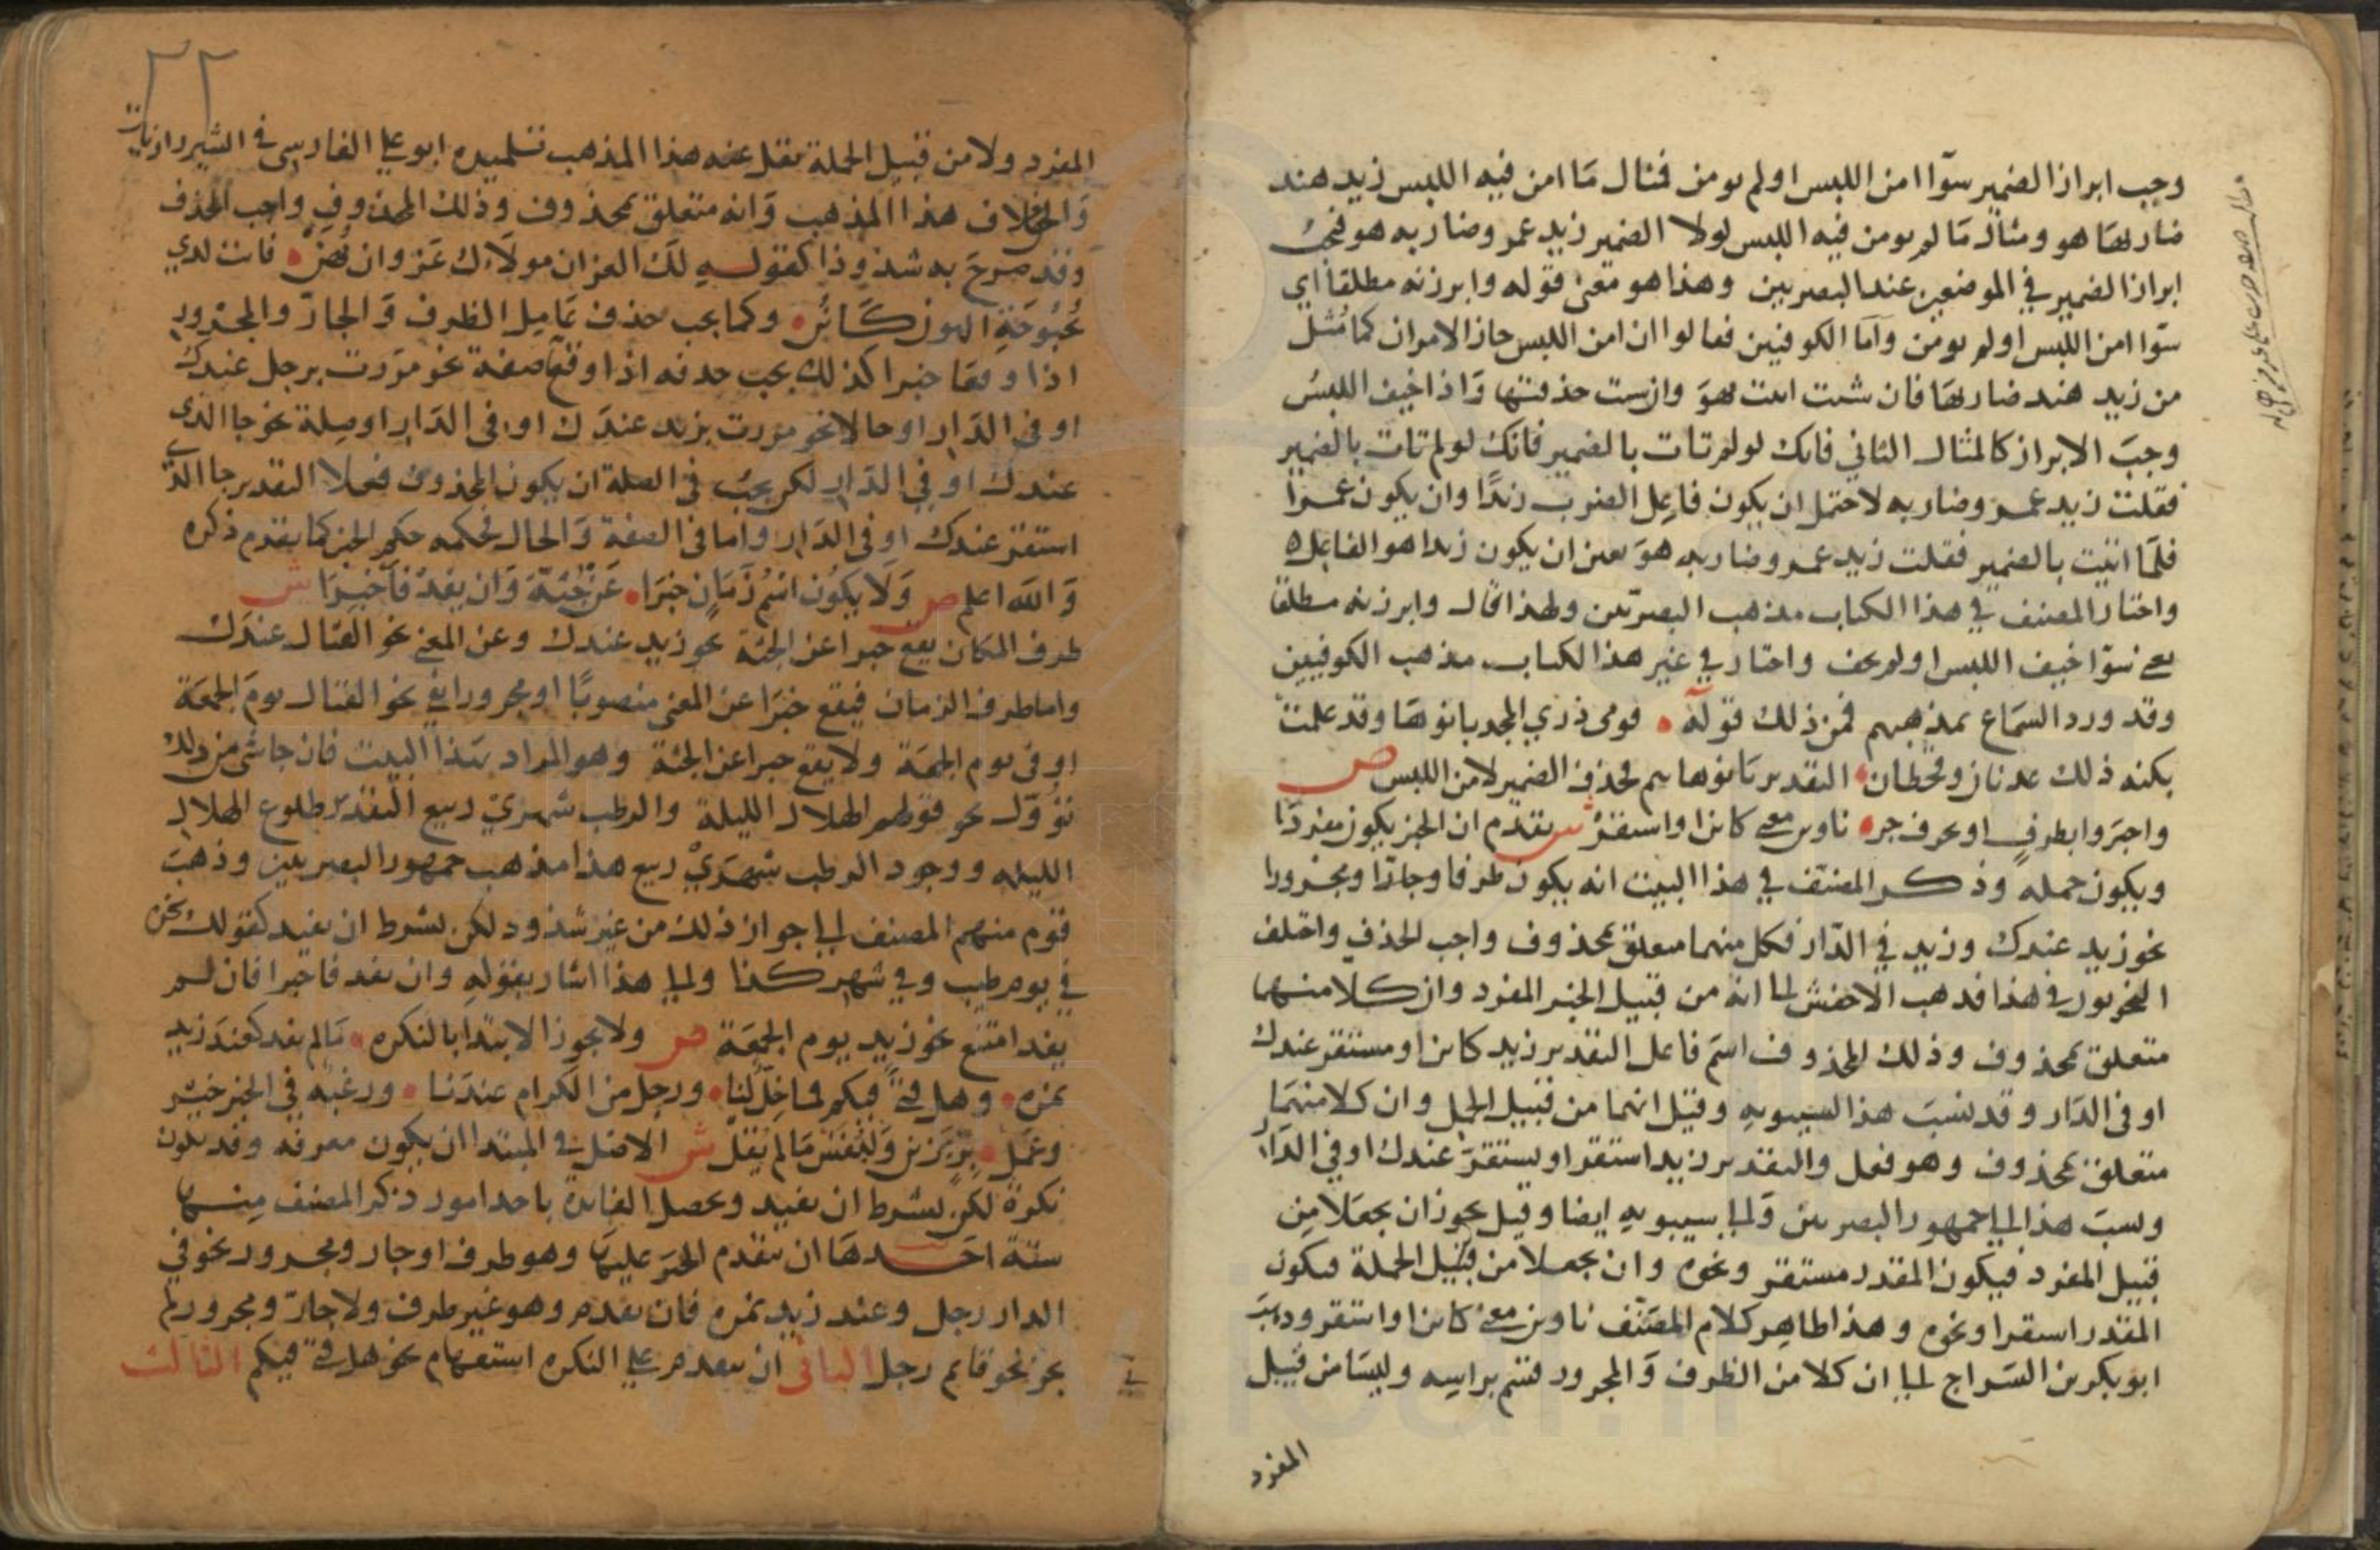 وجب ابراز الضمير سوآ امن اللبس او لم يومن فمثال ما امن فيه اللبس زيد هند
ضاربها هو ومثال ما لم يومن فيه اللبس لولا الضمير زيد عمرو ضاربه هو فيجب
ابراز الضمير في الموضعين عند البصريين وهذا هو معنى قوله وابرزنه مطلقا اي
سوا امن اللبس او لم يومن واما الكوفيين فقالوا ان امن اللبس جاز الامران كما مثل
من زيد هند ضاربها فان شيت اتيت بهو وان شيت حذفتها واذا خيف اللبس
وجب الابراز كالمثال الثاني فانك لو لم تات بالضمير فانك لو لم تات بالضمير
فقلت زيد عمرو ضاربه لاحتمل ان يكون فاعل الضرب زيدا وان يكون عمرا
فلما اتيت بالضمير فقلت زيد عمرو ضاربه هو تعين ان يكون زيدا هو الفاعل
واختار المصنف في هذا الكتاب مذهب البصريين ولهذا قال وابرزنه مطلقا
يعني سوا خيف اللبس او لم يخف واختار في غير هذا الكتاب مذهب الكوفيين
وقد ورد السماع بمذهبهم فمن ذلك قوله قومي ذري المجد بانوها وقد علمت
بكنه ذلك عدنان وقحطان التقدير بانوها هم فحذف الضمير لامن اللبس ص
واخبروا بظرف او بحرف جر ناوين معنى كاين او استقر ش تقدم ان الخبر يكون مفردا
ويكون جملة وذكر المصنف في هذا البيت انه يكون ظرفا وجارا ومجرورا
نحو زيد عندك وزيد في الدار فكل منهما متعلق بمحذوف واجب الحذف واختلف
النحويون في هذا فذهب الاخفش الى انه من قبيل الخبر المفرد وان كلا منهما
متعلق بمحذوف وذلك المحذوف اسم فاعل التقدير زيد كاين او مستقر عندك
او في الدار وقد نسب هذا لسيبويه وقيل انهما من قبيل الجمل وان كلا منهما
متعلق بمحذوف وهو فعل والتقدير زيد استقر او يستقر عندك او في الدار
ونسب هذا الى جمهور البصريين والى سيبويه ايضا وقيل يجوز ان يجعلا من
قبيل المفرد فيكون المقدر مستقر ونحوه وان يجعلا من قبيل الجملة فيكون
المقدر استقر او نحوه وهذا ظاهر كلام المصنف ناوين معنى كاين او استقر وذهب
ابو بكر بن السراج الى ان كلا من الظرف والمجرور قسم براسه وليسا من قبيل
المفرد
٢٢
المفرد ولا من قبيل الجملة نقل عنه هذا المذهب تلميذه ابو علي الفارسي في الشيرازيات
والحق خلاف هذا المذهب وانه متعلق بمحذوف وذلك المحذوف واجب الحذف
وقد صرح به شذوذا كقوله لك العز ان مولاك عز وان يهن فانت لدي
بحبوحة الهون كائن وكما يجب حذف عامل الظرف والجار والمجرور
اذا وقعا خبرا كذلك يجب حذفه اذا وقعا صفة نحو مررت برجل عندك
او في الدار او حالا نحو مررت بزيد عندك او في الدار او صلة نحو جا الذي
عندك او في الدار لكن يجب في الصلة ان يكون المحذوف فعلا التقدير جا الذي
استقر عندك او في الدار واما في الصفة والحال فحكمه حكم الخبر كما تقدم ذكره
والله اعلم ص ولا يكون اسم زمان خبرا عن جثة وان يفد فاخبرا ش
ظرف المكان يقع خبرا عن الجثة نحو زيد عندك وعن المعنى نحو القتال عندك
واما ظرف الزمان فيقع خبرا عن المعنى منصوبا او مجرورا بفي نحو القتال يوم الجمعة
او في يوم الجمعة ولا يقع خبرا عن الجثة وهو المراد بهذا البيت فان جا شي من ذلك
تؤول نحو قولهم الهلال الليلة والرطب شهري ربيع التقدير طلوع الهلال
الليلة ووجود الرطب شهري ربيع هذا مذهب جمهور البصريين وذهب
قوم منهم المصنف الى جواز ذلك من غير شذوذ لكن بشرط ان يفيد كقولك نحن
في يوم طيب وفي شهر كذا والى هذا اشار بقوله وان يفد فاخبرا فان لم
يفد امتنع نحو زيد يوم الجمعة ص ولا يجوز الابتدا بالنكره مالم تفد كعند زيد
نمره وهل فتى فيكم فما خل لنا ورجل من الكرام عندنا ورغبة في الخير خير
وعمل بر يزين وليقس مالم يقل ش الاصل في المبتدا ان يكون معرفة وقد يكون
نكرة لكن بشرط ان تفيد وتحصل الفايدة باحد امور ذكر المصنف منها
ستة احدها ان يتقدم الخبر عليها وهو ظرف او جار ومجرور نحو في
الدار رجل وعند زيد نمره فان تقدم وهو غير ظرف ولا جار ومجرور لم
يجز نحو قايم رجل الثاني ان يتقدم على النكره استفهام نحو هل فتى فيكم الثالث